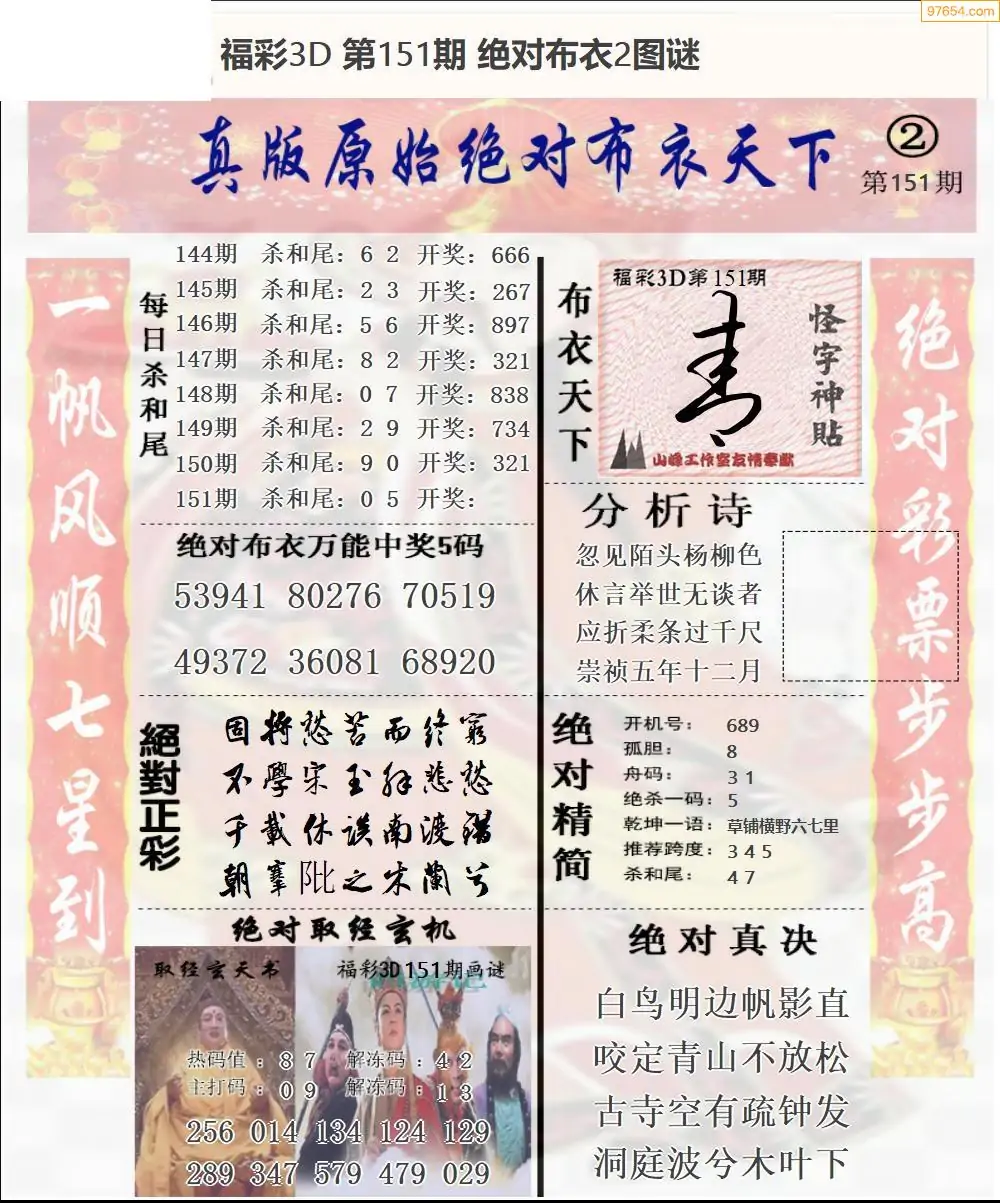 97654.com
福彩3D 第151期 绝对布衣2图谜
真版原始绝对布衣天下
②
第151期
一帆风顺七星到
每日杀和尾
144期 杀和尾: 6 2 开奖: 666
145期 杀和尾: 2 3 开奖: 267
146期 杀和尾: 5 6 开奖: 897
147期 杀和尾: 8 2 开奖: 321
148期 杀和尾: 0 7 开奖: 838
149期 杀和尾: 2 9 开奖: 734
150期 杀和尾: 9 0 开奖: 321
151期 杀和尾: 0 5 开奖:
绝对布衣万能中奖5码
53941 80276 70519
49372 36081 68920
絕對正彩
固将愁苦而终窮
不學宋玉解悲愁
千載休談南渡錯
朝搴阰之木蘭兮
绝对取经玄机
取经玄天书
福彩3D151期画谜
热码值 : 8 7 解冻码 : 4 2
主打码 : 0 9 解冻码 : 1 3
256 014 134 124 129
289 347 579 479 029
布衣天下
福彩3D第151期
怪字神贴
山峰工作室友情奉献
分析诗
忽见陌头杨柳色
休言举世无谈者
应折柔条过千尺
崇祯五年十二月
绝对精简
开机号: 689
孤胆: 8
舟码: 3 1
绝杀一码: 5
乾坤一语: 草铺横野六七里
推荐跨度: 3 4 5
杀和尾: 4 7
绝对真决
白鸟明边帆影直
咬定青山不放松
古寺空有疏钟发
洞庭波兮木叶下
绝对彩票步步高